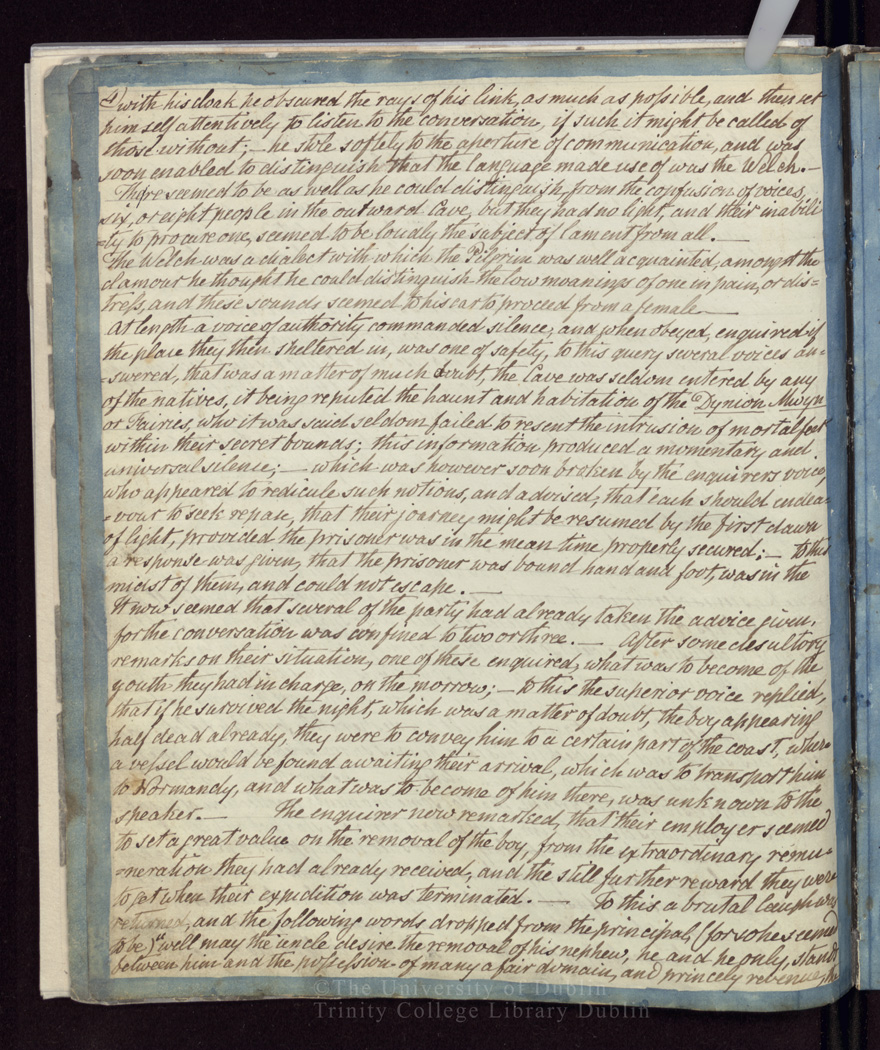 & with his cloak he obscured the rays of his link, as much as possible, and then set
him self attentively to listen to the conversation, if such it might be called of
those without; — he stole softely to the aperture of communication, and was
soon enabled to distinguish that the language made use of was the Welch. —
There seemed to be as well as he could distinguish, from the confusion of voices,
six, or eight people in the outward Cave, but they had no light, and their inabili
=ty to procure one, seemed to be loudly the subject of lament from all. —
The Welch was a dialect with which the Pilgrim was well acquainted, amongst the
clamour he thought he could distinguish the low moanings of one in pain, or dis=
tress, and these sounds seemed to his ear to proceed from a female —
At length a voice of authority commanded silence, and when obeyed, enquired if
the place they then sheltered in, was one of safety, to this query several voices an=
=swered, that was a matter of much doubt, the Cave was seldom entered by any
of the natives, it being reputed the haunt and habitation of the Dynion Mwyn
or Fairies, who it was said seldom failed to resent the intrusion of mortal feet
within their secret bounds; this information produced a momentary and
universal silence; — which was however soon broken by the enquirers voice,
who appeared to redicule such notions, and advised, that each should endea=
=vour to seek repose, that their journey might be resumed by the first dawn
of light, provided the prisoner was in the mean time properly secured: — to this
a response was given, that the prisoner was bound hand and foot, was in the
midst of them, and could not escape. —
It now seemed that several of the party had already taken the advice given,
for the conversation was confined to two or three. — After some desultory
remarks on their situation, one of these enquired, what was to become of the
youth they had in charge, on the morrow; — to this the superior voice replied,
that if he survived the night, which was a matter of doubt, the boy appearing
half dead already, they were to convey him to a certain part of the coast, where
a vessel would be found awaiting their arrival, which was to transport him
to Normandy, and what was to become of him there, was unknown to the
speaker. — The enquirer now remarked, that their employer seemed
to set a great value on the removal of the boy, from the extraordinary remu=
=neration they had already received, and the still further reward they were
to get when their expidition was terminated. — To this a brutal laugh was
returned, and the following words dropped from the principal, (for so he seemed
to be) "well may the uncle desire the removal of his nephew, he, and he only, stands
between him and the possession of many a fair domain, and princely revenue,
©The University of Dublin
Trinity College Library Dublin